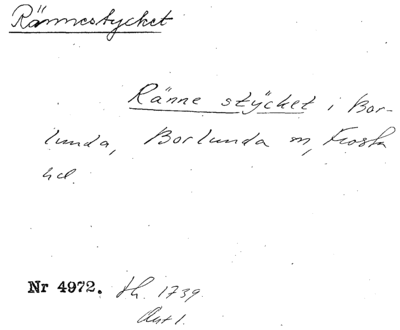 Rännestycket
Ränne stÿcket i Bor-
lunda, Borlunda sn, Frosta
hd.
Nr 4972. fh. 1739.
Akt 1.